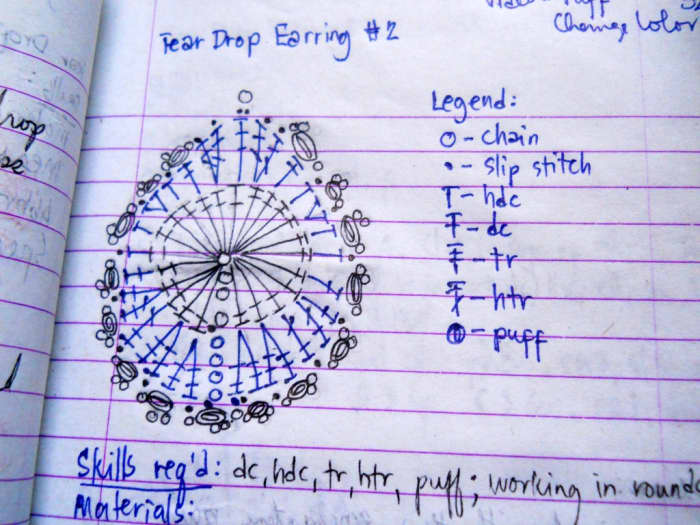 Change Color
Tear Drop Earring #2
Legend:
o - chain
• - slip stitch
T - hdc
Ŧ - dc
- tr
- htr
- puff
rop
Skills req'd: dc, hdc, tr, htr, puff; working in rounds
Materials: